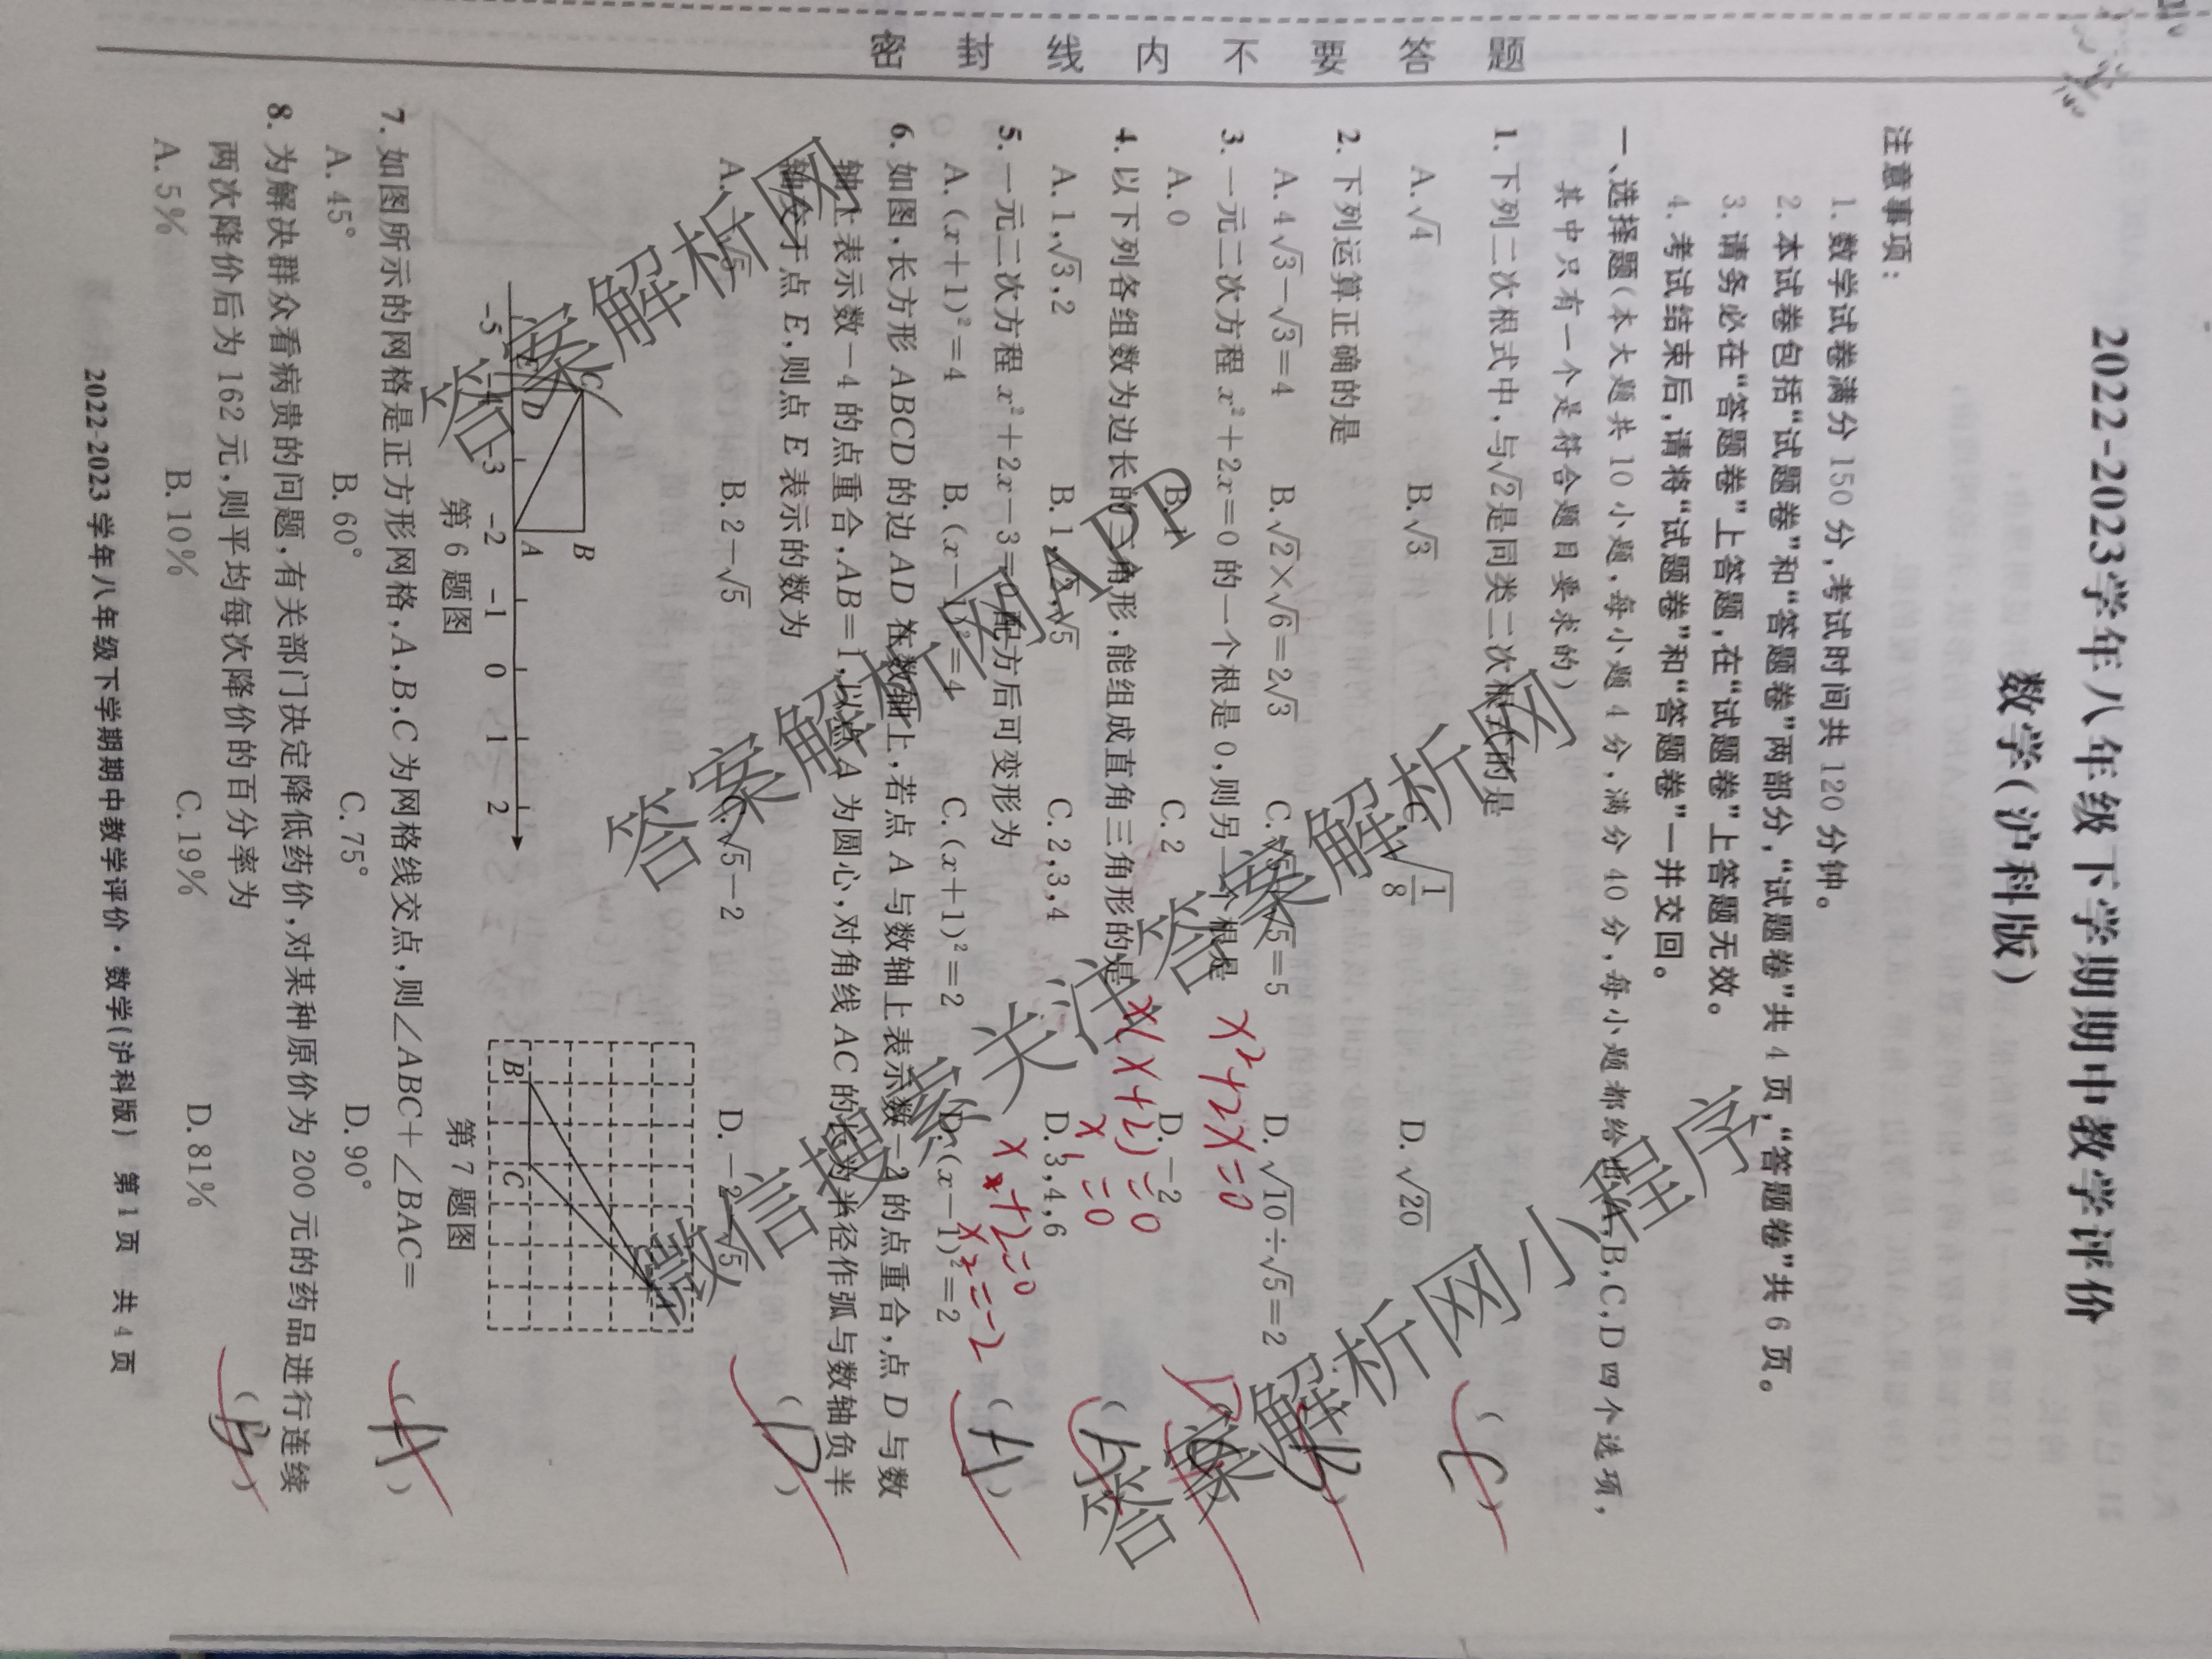 密 封 线 内 不 要 答 题
2022-2023学年八年级下学期期中教学评价
数学(沪科版)
注意事项：
1.数学试卷满分150分,考试时间共120分钟。
2.本试卷包括“试题卷”和“答题卷”两部分,“试题卷”共4页,“答题卷”共6页。
3.请务必在“答题卷”上答题,在“试题卷”上答题无效。
4.考试结束后,请将“试题卷”和“答题卷”一并交回。
一、选择题(本大题共10小题,每小题4分,满分40分,每小题都给出A,B,C,D四个选项,
其中只有一个是符合题目要求的)
1.下列二次根式中,与√2是同类二次根式的是 ( C )
A.√4 B.√3 C.√(1/8) D.√20
2.下列运算正确的是 B
A.4√3-√3=4 B.√2×√6=2√3 C.√5·√5=5 D.√10÷√5=2
3.一元二次方程x²+2x=0的一个根是0,则另一个根是 D
x²+2x=0
A.0 B.1 C.2 D.-2
x(x+2)=0
4.以下列各组数为边长的三角形,能组成直角三角形的是 ( A )
x₁=0
A.1,√3,2 B.1,√2,√5 C.2,3,4 D.3,4,6
x+2=0
x₂=-2
5.一元二次方程x²+2x-3=0配方后可变形为 ( A )
A.(x+1)²=4 B.(x-1)²=4 C.(x+1)²=2 D.(x-1)²=2
6.如图,长方形ABCD的边AD在数轴上,若点A与数轴上表示数-2的点重合,点D与数
轴上表示数-4的点重合,AB=1,以点A为圆心,对角线AC的长为半径作弧与数轴负半
轴交于点E,则点E表示的数为 ( D )
A.-√5 B.2-√5 C.√5-2 D.-2-√5
C B
E D A
-5 -4 -3 -2 -1 0 1 2
第6题图
A
B C
第7题图
7.如图所示的网格是正方形网格,A,B,C为网格线交点,则∠ABC+∠BAC= ( A )
A.45° B.60° C.75° D.90°
8.为解决群众看病贵的问题,有关部门决定降低药价,对某种原价为200元的药品进行连续
两次降价后为162元,则平均每次降价的百分率为 ( B )
A.5% B.10% C.19% D.81%
2022-2023学年八年级下学期期中教学评价·数学(沪科版) 第1页 共4页
答案解析网
答案解析网APP
微信搜索关注答案解析网
答案解析网小程序